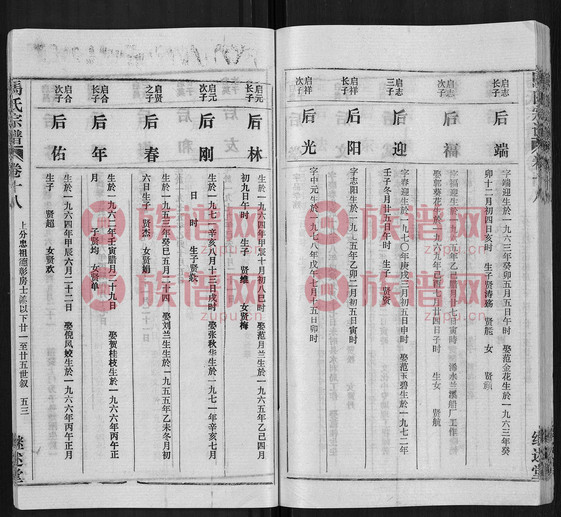 后端
字端迎生於一九六三年癸卯五月五日午时 娶范金花生於一九六三年癸
卯十二月初四日亥时 生子贤涛 贤能 女 贤
启志次子
后福
娶郭葵花於一九六九年己酉四月廿四日子时 生女 贤航
启志三子
后迎
字春迎生於一九七〇年庚戌三月初五日申时 娶范玉碧生於一九七二年
壬子冬月廿五日午时 生子 贤
启祥长子
后阳
字志阳生於一九七五年乙卯二月初五日寅时
启祥次子
后光
字中元生於一九七八年戊午七月十五日卯时
启元长子
后林
生於一九六四年甲辰十月初八巳时 娶范月兰生於一九六五年乙巳四月
初九日午时 生子 贤维 女贤梅
启元次子
后刚
生於一九七一辛亥八月十三日戌时 娶张秋华生於一九七一年辛亥七月
日 时 生子贤
启贤之子
后春
生於一九五三年癸巳五月二十四 娶刘兰生生於一九五五年乙未冬月初
六日生子 贤杰 女贤娟
启合长子
后年
生於一九六二年壬寅腊月二十九日 娶贺桂枝生於一九六六年丙午正月
月 子贤均 女贤单
启合次子
后佑
生於一九六四年甲辰六月二十二日 娶倪凤姣生於一九六六年丙午正月
生子 贤超 女贤欢
馬氏宗譜 卷十八
上分忠祖德彰房士誰以下廿一至廿五世叙 五三
继述堂
族谱网
zupu.cn